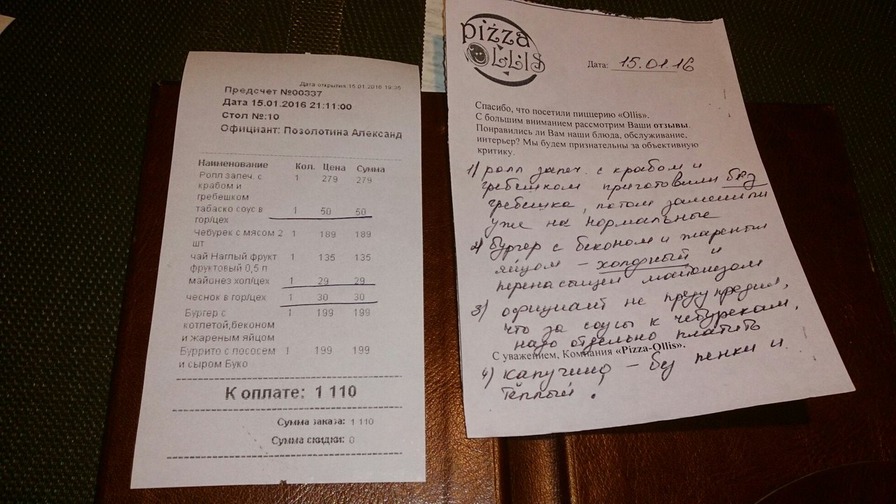 Дата открытия:15.01.2016 19:35
Предсчет №00337
Дата 15.01.2016 21:11:00
Стол №:10
Официант: Позолотина Александ
Наименование Кол. Цена Сумма
Ролл запеч. с 1 279 279
крабом и
гребешком
табаско соус в 1 50 50
гор/цех
Чебурек с мясом 2 1 189 189
шт
чай Наглый фрукт 1 135 135
фруктовый 0,5 л
майонез хол/цех 1 29 29
чеснок в гор/цех 1 30 30
Бургер с 1 199 199
котлетой,беконом
и жареным яйцом
Буррито с лососем 1 199 199
и сыром Буко
К оплате: 1 110
Сумма заказа: 1 110
Сумма скидки: 0
pizza
OLLIS
Дата: 15.01.16
Спасибо, что посетили пиццерию «Ollis».
С большим вниманием рассмотрим Ваши отзывы.
Понравились ли Вам наши блюда, обслуживание,
интерьер? Мы будем признательны за объективную
критику.
1) ролл запеч. с крабом и
гребешком приготовили без
гребешка, потом заменили
уже на нормальные
2) бургер с беконом и жареным
яйцом – холодный и
перенасыщен майонезом
3) официант не предупредил,
что за соусы к чебурекам,
надо отдельно платить
С уважением, Компания «Pizza-Ollis».
4) капучино – без пенки и
тёплый!